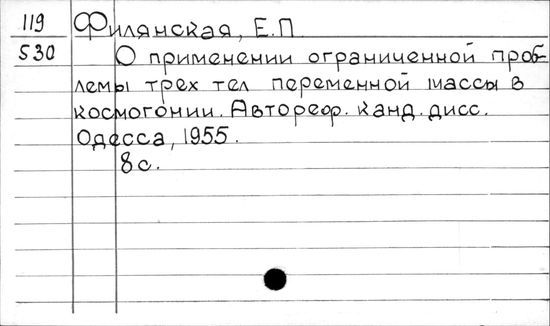 119 Филянская, Е.П.
530 О применении ограниченной проб-
лемы трех тел переменной массы в
космогонии. Автореф. канд. дисс.
Одесса, 1955.
8 с.